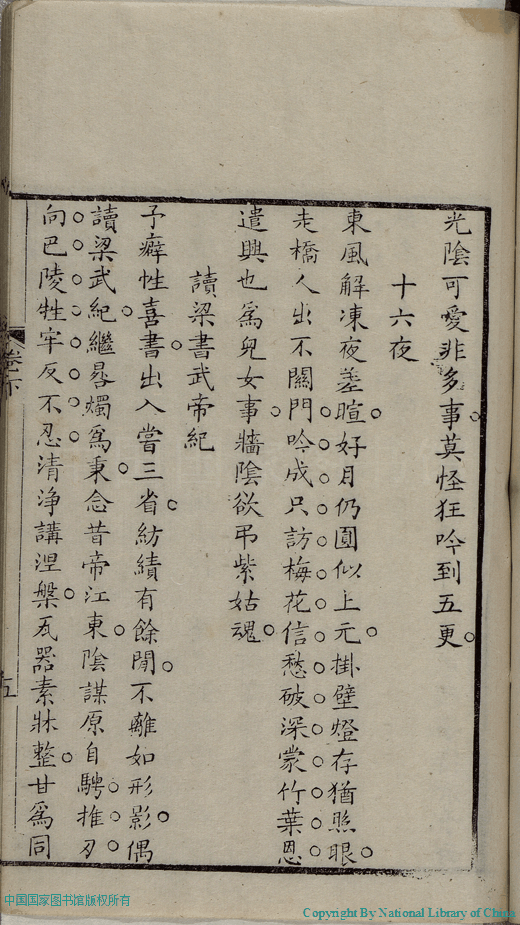 光陰可愛非多事莫怪狂吟到五更
十六夜
東風解凍夜差暄好月仍圓似上元掛壁燈存猶照眼
走橋人出不關門吟成只訪梅花信愁破深蒙竹葉恩
遣興也爲兒女事牆陰欲弔紫姑魂
讀梁書武帝紀
予癖性喜書出入嘗三省紡績有餘閒不離如形影偶
讀梁武紀繼晷燭爲秉念昔帝江東陰謀原自騁推刃
向巴陵牲牢反不忍清淨講涅槃瓦器素牀整甘爲同
卷下
五
中国国家图书馆版权所有
Copyright By National Library of China